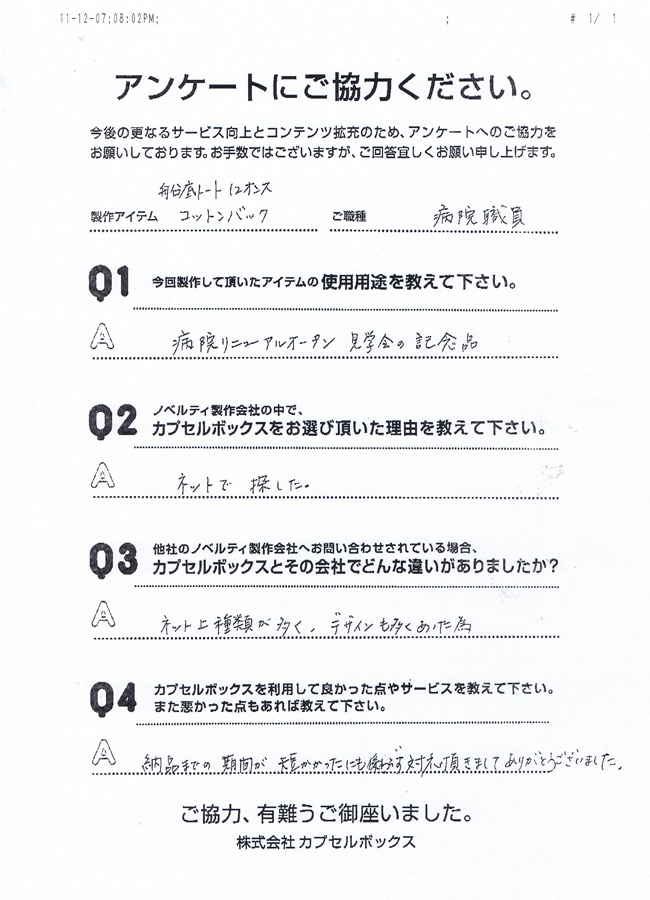 11-12-07;08:02PM; ; # 1/ 1
アンケートにご協力ください。
今後の更なるサービス向上とコンテンツ拡充のため、アンケートへのご協力を
お願いしております。お手数ではございますが、ご回答宜しくお願い申し上げます。
舟位底トート 12オンス
製作アイテム コットンバック ご職種 病院職員
Q1 今回製作して頂いたアイテムの使用用途を教えて下さい。
A 病院リニューアルオープン 見学会の記念品
Q2 ノベルティ製作会社の中で、
カプセルボックスをお選び頂いた理由を教えて下さい。
A ネットで 探した。
Q3 他社のノベルティ製作会社へお問い合わせされている場合、
カプセルボックスとその会社でどんな違いがありましたか?
A ネット上種類が多く、デザインも多くあった為
Q4 カプセルボックスを利用して良かった点やサービスを教えて下さい。
また悪かった点もあれば教えて下さい。
A 納品までの期間が短かかったにも係わらず対応頂きましてありがとうございました。
ご協力、有難うご御座いました。
株式会社 カプセルボックス